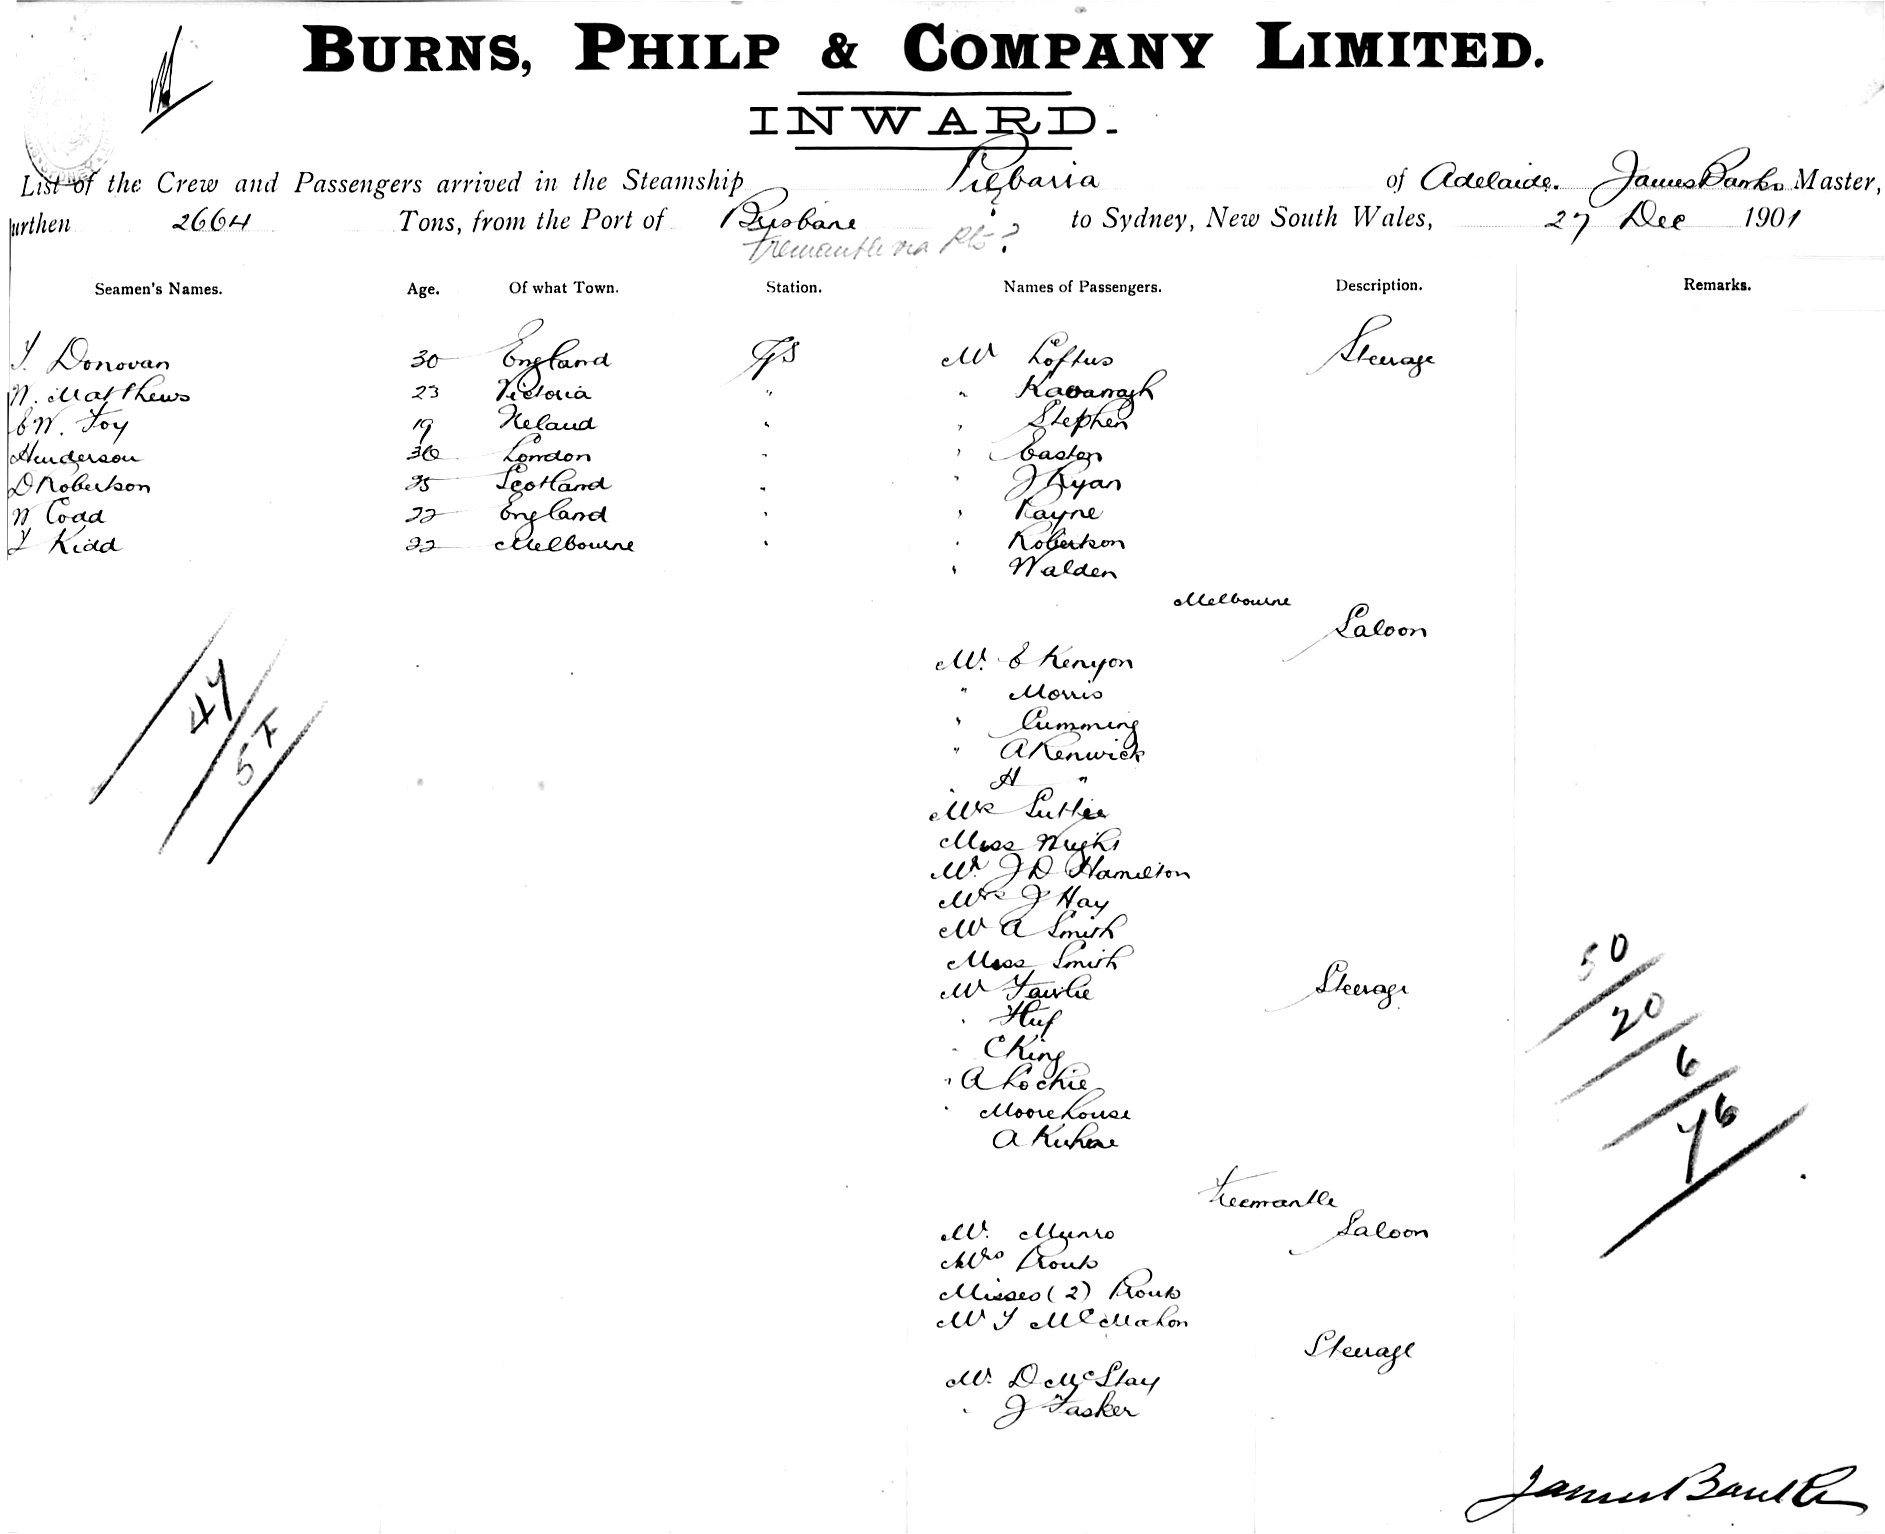 BURNS, PHILP & COMPANY LIMITED.
INWARD.
List of the Crew and Passengers arrived in the Steamship Pilbarra of Adelaide. James Banks Master,
urthen 2664 Tons, from the Port of Brisbane to Sydney, New South Wales, 27 Dec 1901
Fremantle via ?
Seamen's Names. Age. Of what Town. Station. Names of Passengers. Description. Remarks.
T. Donovan 30 England Mr Loftus Steerage
W. Matthews 23 Victoria " " Kavanagh
E W. Foy 19 Ireland " " Stephen
Henderson 30 London " " Easton
D Robertson 25 Scotland " " J Ryan
W Codd 22 England " " Rayne
T Kidd 22 Melbourne " " Robertson
" Walden
Melbourne
Saloon
Mr. E Kenyon
" Morris
" Cumming
" A Renwick
H "
Mrs
Miss Wright
Mr. J D Hamilton
Mrs J Hay
Mr A Smith
Miss Smith
Mr Fairlie Steerage
" Huf
" C King
" A Lochie
" Moorehouse
A
Fremantle
Mr. Munro Saloon
Mrs Prout
Misses (2) Prout
Mr T McMahon
Steerage
Mr. D McStay
" J Tasker
47
57
50
20
6
76
James Banks